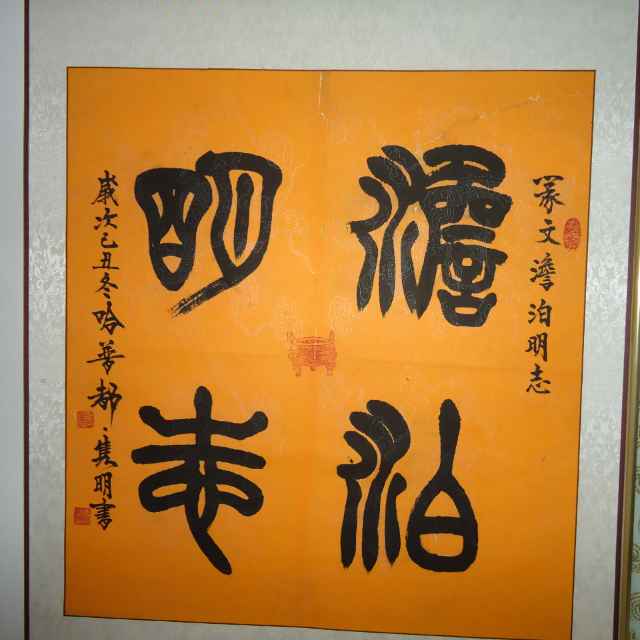 篆文澹泊明志
澹泊
明志
歲次己丑冬哈普都隽明書